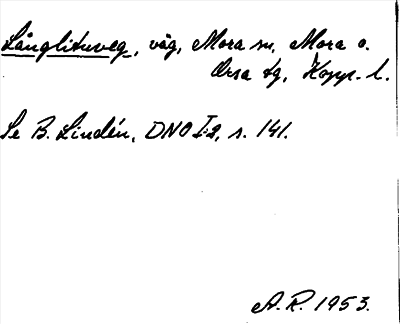 Långlituveg, väg, Mora sn, Mora o.
Orsa tg, Kopp. l.
Se B. Lindén, DNO I:2, s. 141.
A.R. 1953.